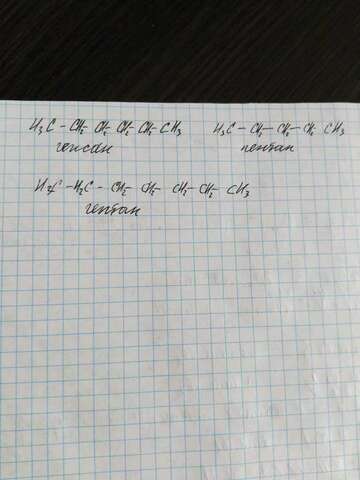 H₃C - CH₂ - CH₂ - CH₂ - CH₂ - CH₃ H₃C - CH₂ - CH₂ - CH₂ - CH₃
гексан пентан
H₃C - H₂C - CH₂ - CH₂ - CH₂ - CH₂ - CH₃
гептан